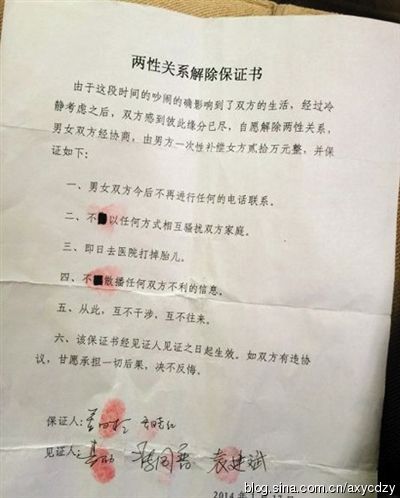 两性关系解除保证书
由于这段时间的吵闹的确影响到了双方的生活，经过冷
静考虑之后，双方感到彼此缘分已尽，自愿解除两性关系，
男女双方经协商，由男方一次性补偿女方贰拾万元整，并保
证如下：
一、男女双方今后不再进行任何的电话联系。
二、不 以任何方式相互骚扰双方家庭。
三、即日去医院打掉胎儿。
四、不 散播任何双方不利的信息。
五、从此，互不干涉，互不往来。
六、该保证书经见证人见证之日起生效。如双方有违协
议，甘愿承担一切后果，决不反悔。
保证人：
见证人： 袁建斌
2014年
blog.sina.com.cn/axycdzy